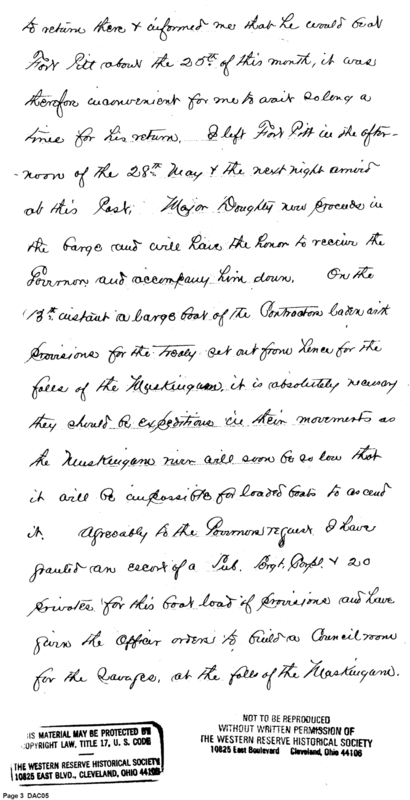 to return there & informed me that he would be at
Fort Pitt about the 25th of this month, it was
therefore inconvenient for me to wait so long a
time for his return. I left Fort Pitt in the after-
-noon of the 28th May & the next night arrived
at this Post. Major Doughty now proceeds in
the barge and will have the honor to receive the
Governor and accompany him down. On the
13th instant a large boat of the Contractors laden with
provisions for the Treaty set out from hence for the
falls of the Muskingum, it is absolutely necessary
they should be expeditious in their movements as
the Muskingum river will soon be so low that
it will be impossible for loaded boats to ascend
it. Agreeably to the Governors request I have
granted an escort of a Sub. Sergt. Corpl. & 20
privates for this boat load of provisions and have
given the officer orders to build a Council room
for the Savages, at the falls of the Muskingum.
IS MATERIAL MAY BE PROTECTED BY
COPYRIGHT LAW, TITLE 17, U. S. CODE
THE WESTERN RESERVE HISTORICAL SOCIETY
10825 EAST BLVD., CLEVELAND, OHIO 44106
NOT TO BE REPRODUCED
WITHOUT WRITTEN PERMISSION OF
THE WESTERN RESERVE HISTORICAL SOCIETY
10825 East Boulevard Cleveland, Ohio 44106
Page 3 DAC05